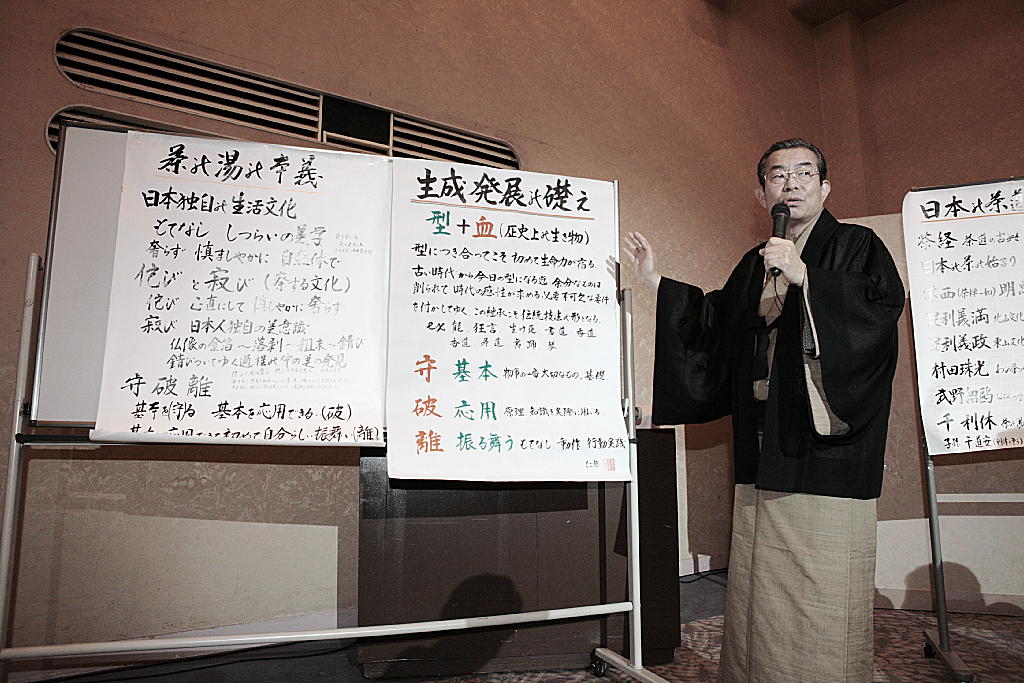 茶の湯の常義
日本独自の生活文化
もてなし しつらいの美学
奢らず 慎ましやかに 自然体で
侘び と 寂び (察する文化)
侘び 正直にして 慎しやかに 奢らず
寂び 日本人独自の美意識
仏像の金箔〜落剥〜粗末〜錆び
錆びついてゆく過程の中の美の発見
守 破 離
基本を守る 基本を応用できる(破)
基本の応用できて初めて自分らしい振舞い(離)
生成発展の礎え
型+血(歴史上の生き物)
型につき合ってこそ 初めて生命力が宿る
古い時代から今日の型になる迄 余分なものは
削られて 時代の感性が求める必要不可欠な条件
を付加してゆく この継承こそ伝統技法の形となる
能 狂言 生け花 書道 香道
守 基本 物事の一番大切なもの、基礎
破 応用 原理 知識を実際に用いる
離 振る舞う もてなし 動作 行動実践
日本の茶道
茶経 茶道の古典
日本の茶の始まり
栄西(茶禅一如) 明恵
足利義満 北山文化
足利義政 東山文化
村田珠光
武野紹鴎
千利休